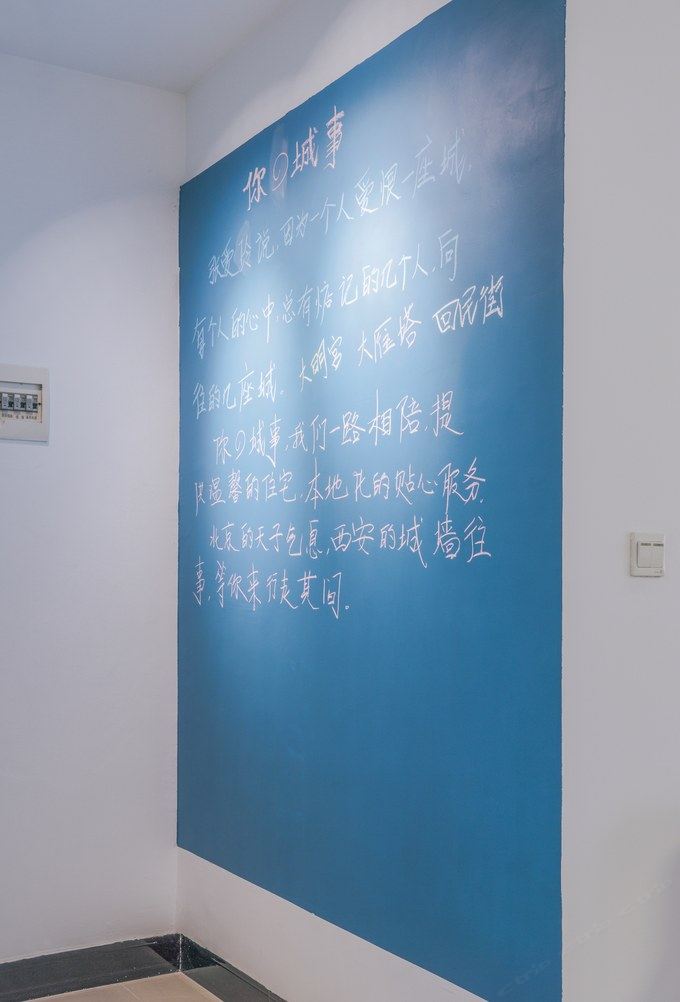 你の城事
张爱玲说,因为一个人爱恨一座城,
每个人的心中,总有惦记的几个人,向
往的几座城。大明宫 大雁塔 回民街
你の城事,我们一路相陪,提
供温馨的住宅,本地化的贴心服务,
北京的天子气息,西安的城墙往
事,等你来行走其间。